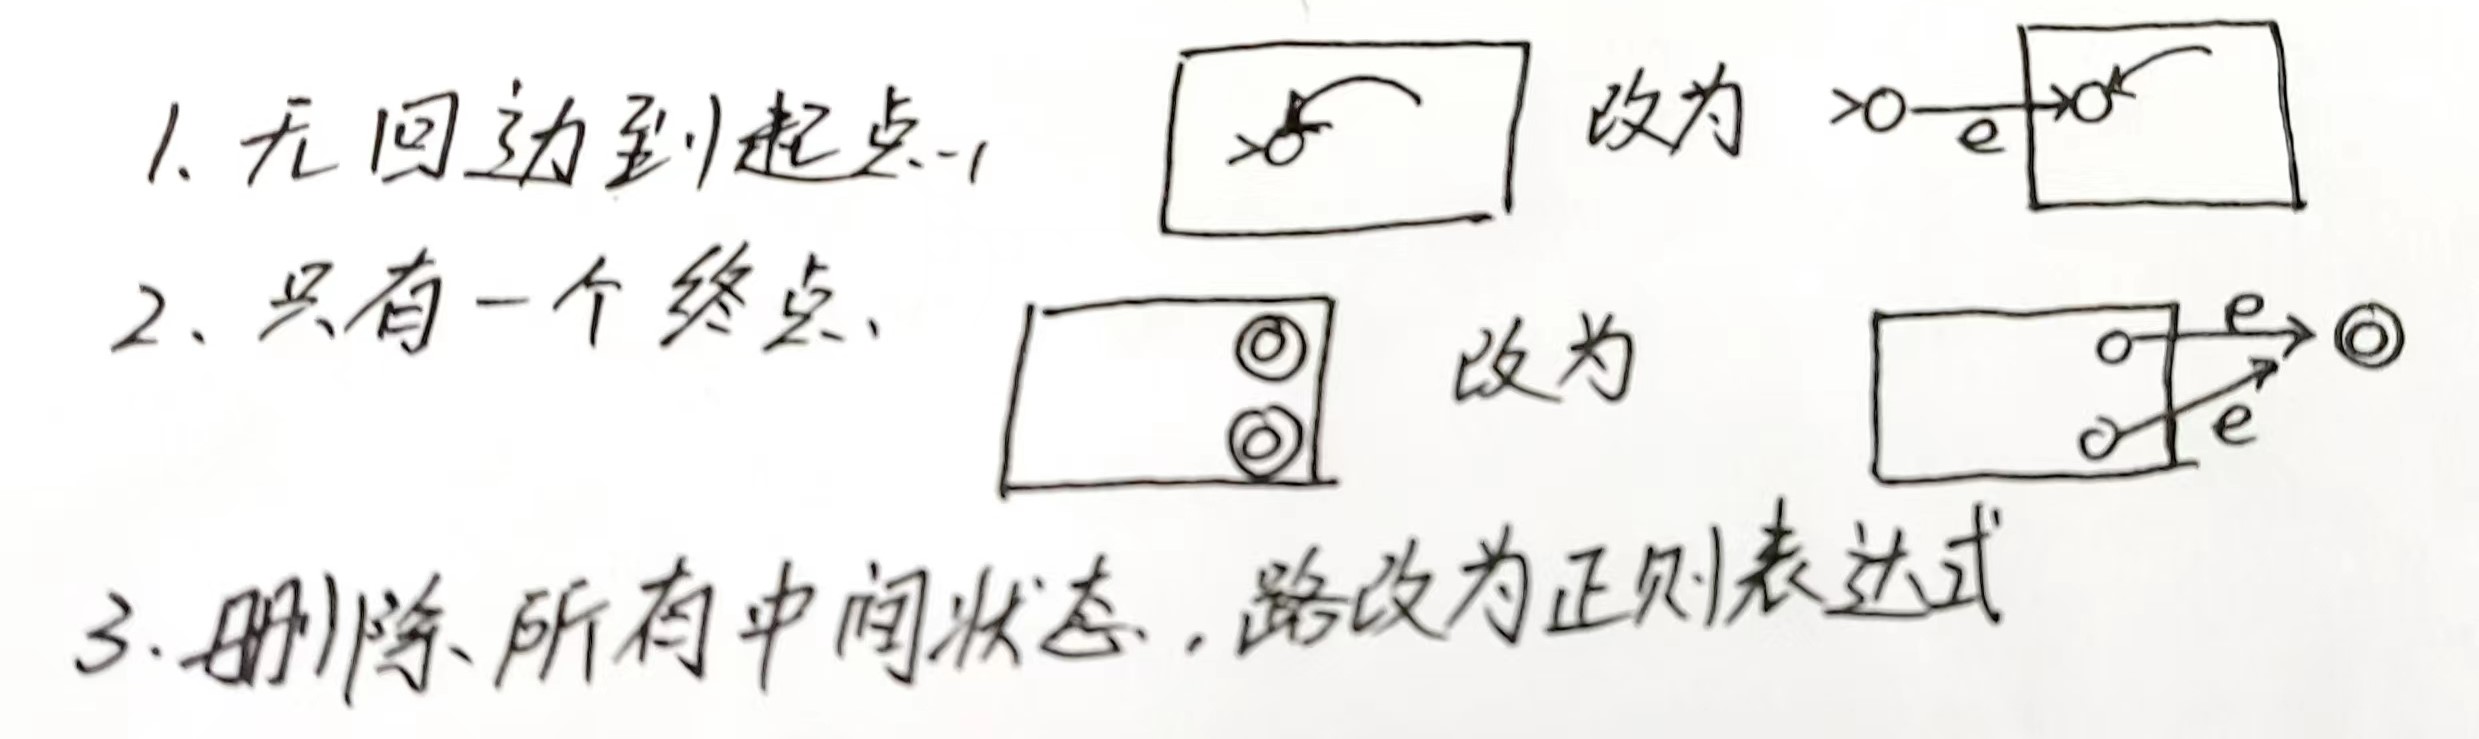 1. 无回边到起点, 改为 e
2、只有一个终点、 改为 e e
3. 删除所有中间状态, 路改为正则表达式